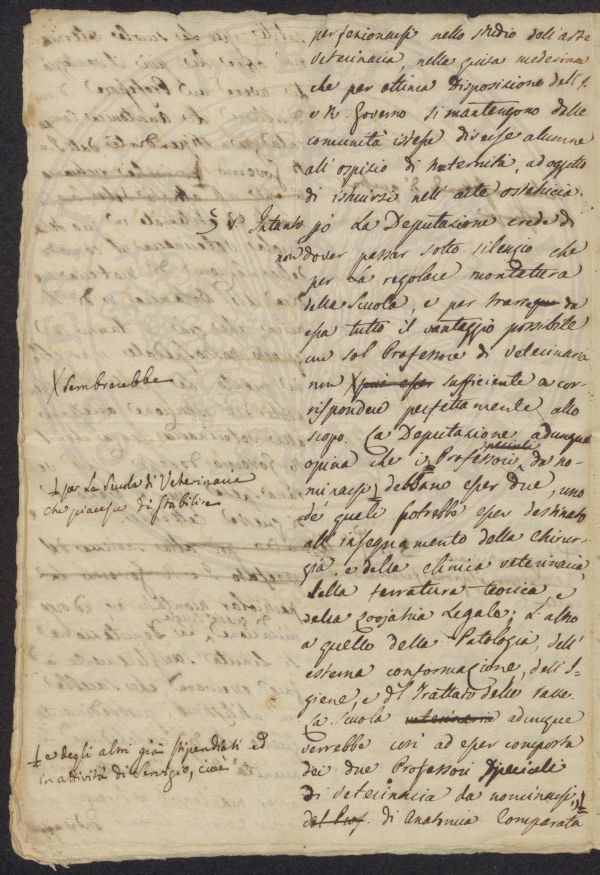 perfezionarsi nello studio dell'arte
Veterinaria, nella guisa medesima
che per ottima disposizione dell'I.
e R. Governo si mantengono dalle
comunità istesse diverse alunne
all'ospizio di Maternità, ad oggetto
di istruirsi nell'arte ostetricia.
§ V. Intanto però La Deputazione crede di
non dover passar sotto silenzio che
per La regolare montatura
della Scuola, e per trarre da
essa tutto il vantaggio possibile
un sol Professore di Veterinaria
non X può esser sufficiente a cor-
X Sembrerebbe
rispondere perfettamente allo
scopo. La Deputazione adunque
opina che i Professori speciali da no-
minarsi debbano esser due, uno
per La Scuola di Veterinaria
che piacesse di stabilire
de' quali potrebbe esser destinato
all'insegnamento della Chirur-
gia, e della clinica veterinaria,
della ferratura teorica, e
della Zoojatria Legale; L'altro
a quello della Patologia, dell'
esterna conformazione, dell'I-
giene, e del Trattato delle razze.
La Scuola veterinaria adunque
verrebbe così ad esser composta
dei due Professori Speciali
e degli altri già stipendiati ed
in attività di servizio, cioè
di Veterinaria da nominarsi,
del Prof. di Anatomia Comparata